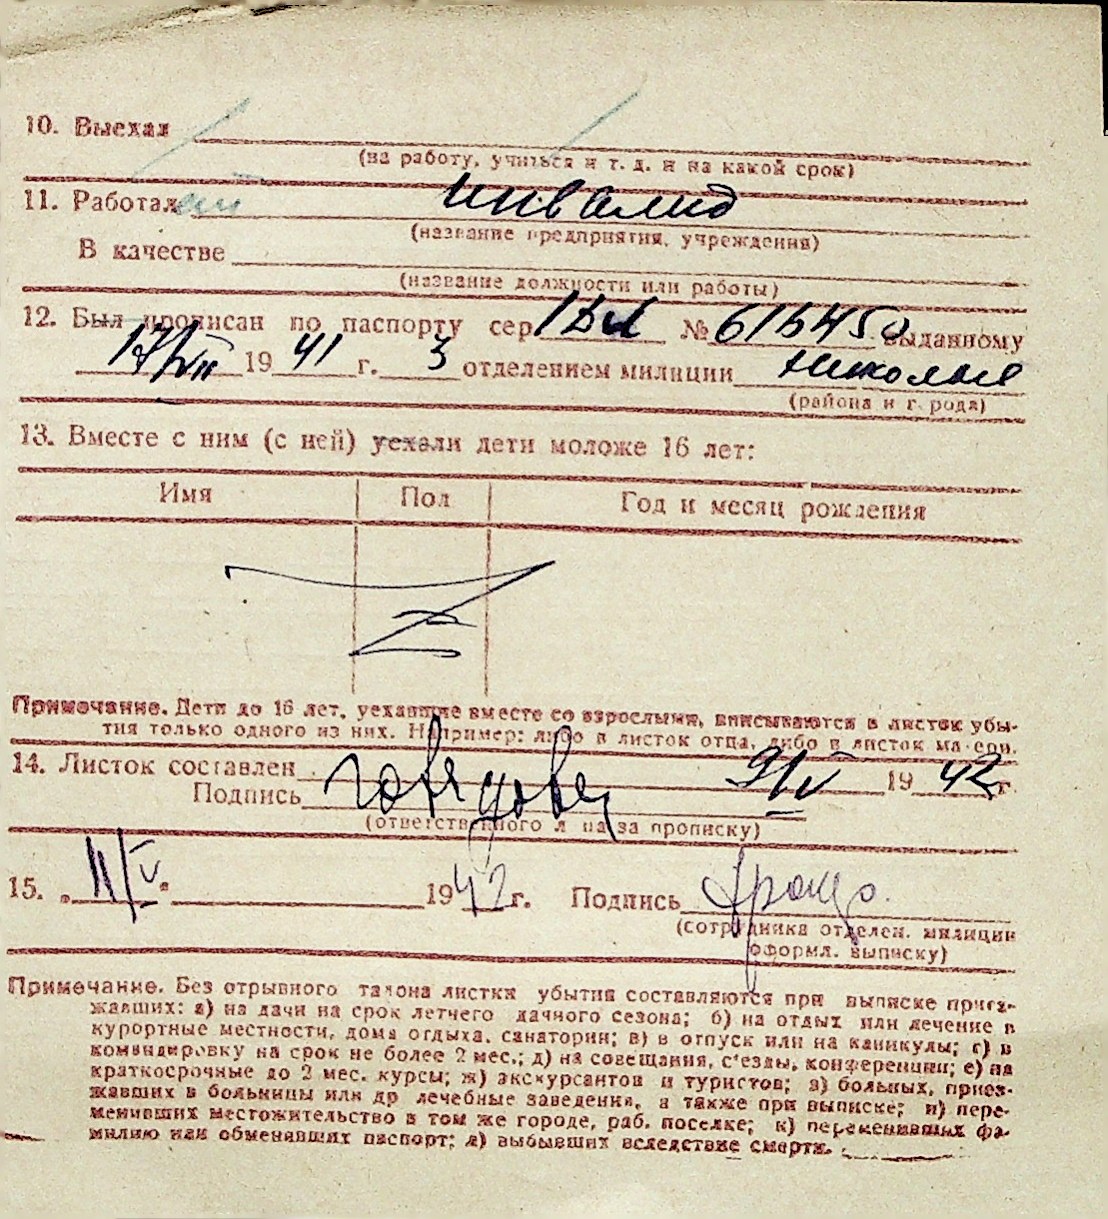 10. Выехал
(на работу, учиться и т. д. и на какой срок)
11. Работал инвалид
(название предприятия, учреждения)
В качестве
(название должности или работы)
12. Был прописан по паспорту сер. № 616450 выданному
17/VII 19 41 г. 3 отделением милиции
(района и города)
13. Вместе с ним (с ней) уехали дети моложе 16 лет:
Имя Пол Год и месяц рождения
Примечание. Дети до 16 лет, уехавшие вместе со взрослыми, вписываются в листок убы-
тия только одного из них. Например: либо в листок отца, либо в листок матери.
14. Листок составлен 9/V 19 42 г.
Подпись
(ответственного лица за прописку)
15. „ 11/V " 19 42 г. Подпись
(сотрудника отделен. милиции
оформл. выписку)
Примечание. Без отрывного талона листки убытия составляются при выписке приез-
жавших: а) на дачи на срок летнего дачного сезона; б) на отдых или лечение в
курортные местности, дома отдыха, санатории; в) в отпуск или на каникулы; г) в
командировку на срок не более 2 мес.; д) на совещания, с'езды, конференции; е) на
краткосрочные до 2 мес. курсы; ж) экскурсантов и туристов; з) больных, приез-
жавших в больницы или др лечебные заведения, а также при выписке; и) пере-
менивших местожительство в том же городе, раб. поселке; к) переменивших фа-
милию или обменявших паспорт; л) выбывших вследствие смерти.